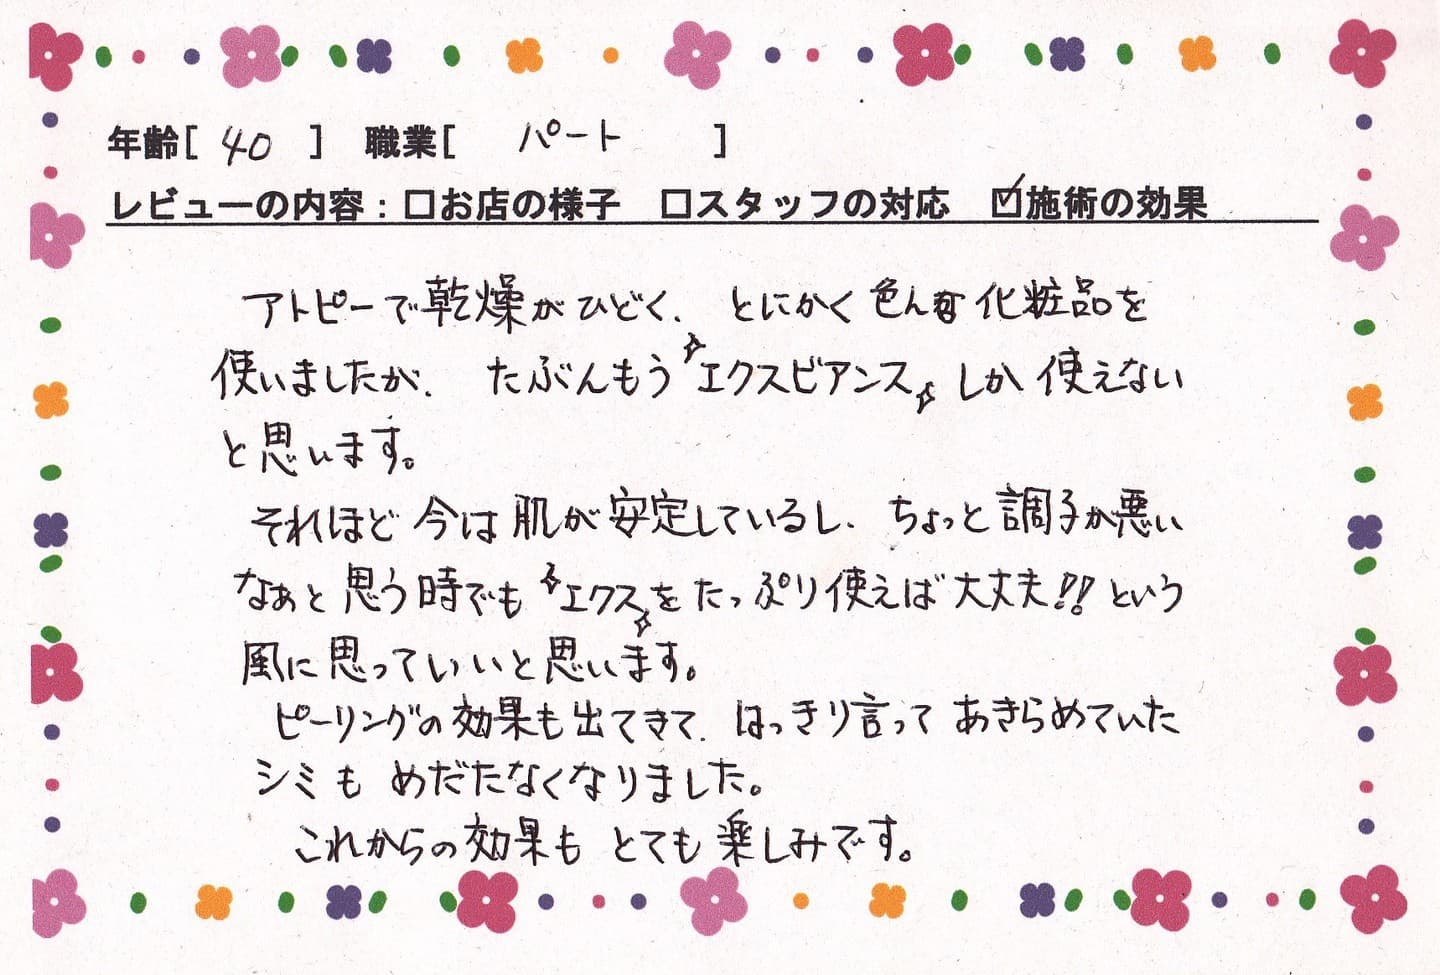 年齢[ 40 ] 職業[ パート ]
レビューの内容：□お店の様子 □スタッフの対応 ☑施術の効果
アトピーで乾燥がひどく、とにかく色んな化粧品を
使いましたが、たぶんもう〝エクスビアンス〟しか使えない
と思います。
それほど今は肌が安定しているし、ちょっと調子が悪い
なぁと思う時でも〝エクス〟をたっぷり使えば大丈夫!!という
風に思っていいと思います。
ピーリングの効果も出てきて、はっきり言ってあきらめていた
シミもめだたなくなりました。
これからの効果もとても楽しみです。